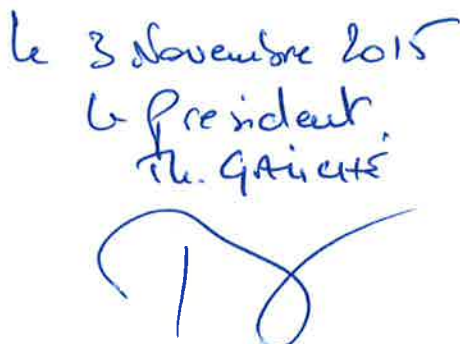 le 3 Novembre 2015
le President
Th.